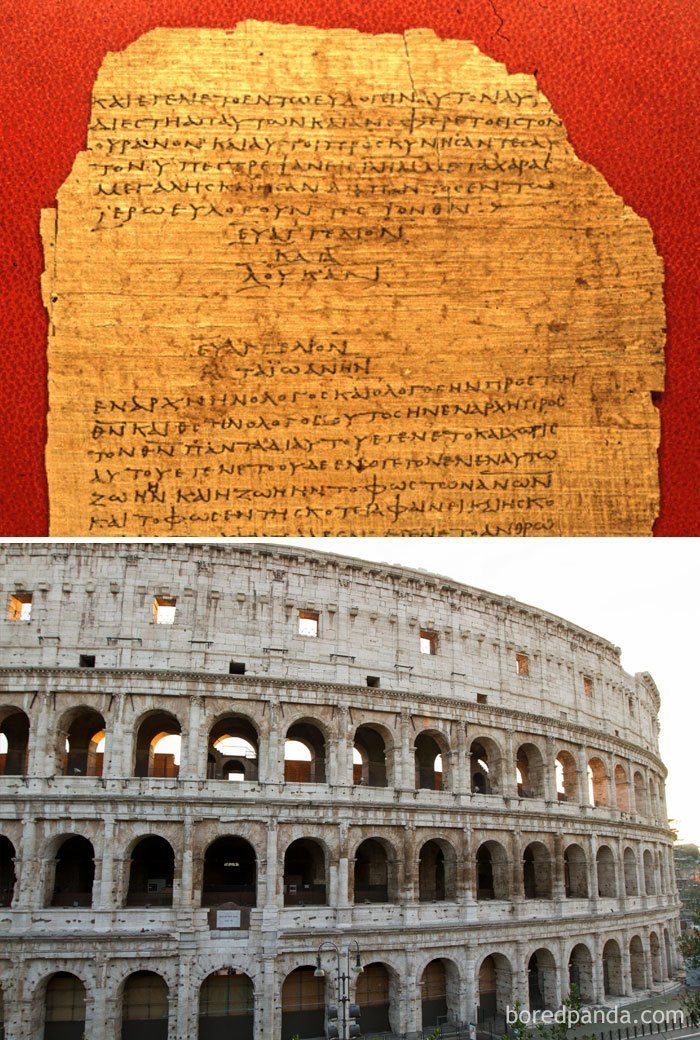 ΚΑΙΕΓΕΝΕΤΟΕΝΤΩΕΥΛΟΓΕΙΝΑΥΤΟΝΑΥ
ΔΙΕϹΤΗΑΠΑΥΤΩΝΚΑΙΑΝΕΦΕΡΕΤΟΕΙϹΤΟΝ
ΟΥΡΑΝΟΝΚΑΙΑΥΤΟΙΠΡΟϹΚΥΝΗϹΑΝΤΕϹΑΥ
ΤΟΝΥΠΕϹΤΡΕΨΑΝ ΜΕΤΑΧΑΡΑϹ
ΜΕΓΑΛΗϹΚΑΙΗϹΑΝΔΙΑΠΑΝΤΟϹΕΝΤΩ
ΙΕΡΩΕΥΛΟΓΟΥΝΤΕϹΤΟΝΘΝ
ΕΥΑΓΓΕΛΙΟΝ
ΚΑΤΑ
ΛΟΥΚΑΝ
ΕΥΑΓΓΕΛΙΟΝ
ΚΑΤΑΪΩΑΝΗΝ
ΕΝΑΡΧΗΗΝΟΛΟΓΟϹΚΑΙΟΛΟΓΟϹΗΝΠΡΟϹΤΟΝ
ΘΝΚΑΙΘϹΗΝΟΛΟΓΟϹΟΥΤΟϹΗΝΕΝΑΡΧΗΠΡΟϹ
ΤΟΝΘΝΠΑΝΤΑΔΙΑΥΤΟΥΕΓΕΝΕΤΟΚΑΙΧΩΡΙϹ
ΑΥΤΟΥΕΓΕΝΕΤΟΟΥΔΕΕΝΟΓΕΓΟΝΕΝΕΝΑΥΤΩ
ΖΩΗΗΝΚΑΙΗΖΩΗΗΝΤΟΦΩϹΤΩΝΑΝΩΝ
ΚΑΙΤΟΦΩϹΕΝΤΗϹΚΟΤΕΙΑΦΑΙΝΕΙΚΑΙΗϹΚΟ
boredpanda.com